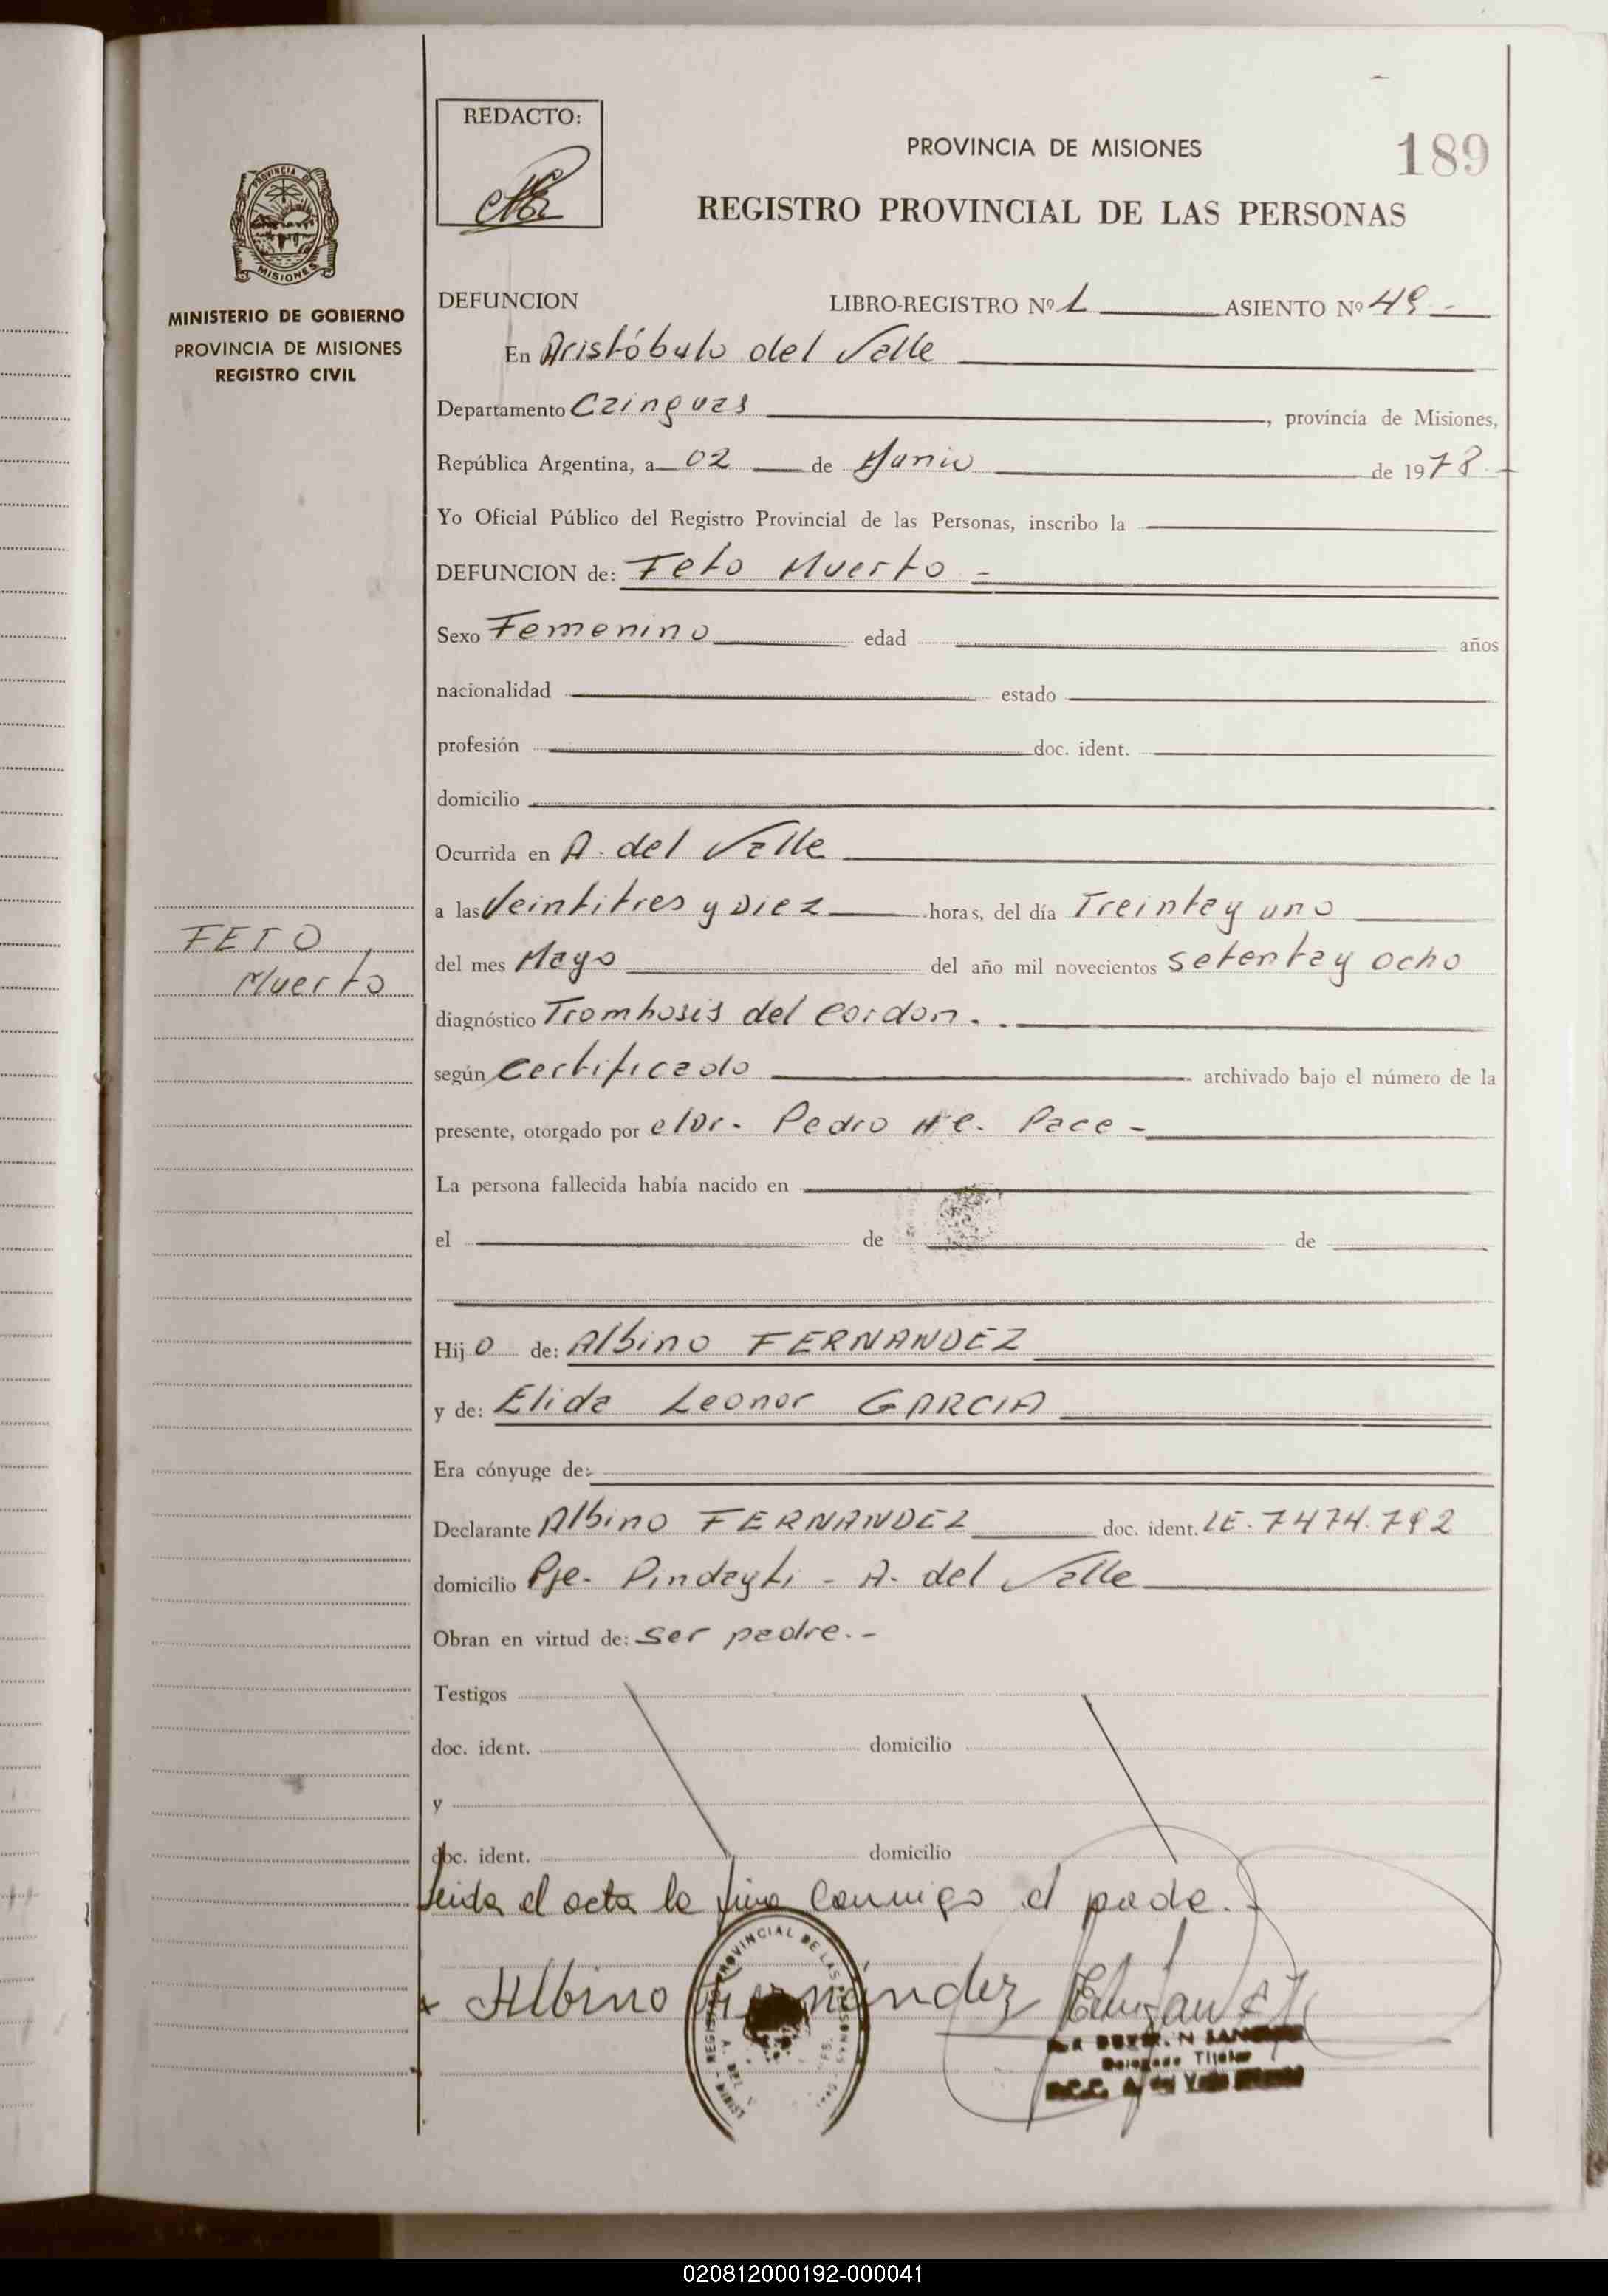 REDACTO:
PROVINCIA DE MISIONES
189
REGISTRO PROVINCIAL DE LAS PERSONAS
PROVINCIA DE
MISIONES
MINISTERIO DE GOBIERNO
PROVINCIA DE MISIONES
REGISTRO CIVIL
DEFUNCION LIBRO-REGISTRO Nº 1 ASIENTO Nº 49 -
En Aristóbulo del Valle
Departamento Cainguas, provincia de Misiones,
República Argentina, a 02 de Junio de 1978.-
Yo Oficial Público del Registro Provincial de las Personas, inscribo la
DEFUNCION de: Feto Muerto -
Sexo Femenino edad años
nacionalidad estado
profesión doc. ident.
domicilio
Ocurrida en A. del Valle
a las Veintitres y Diez horas, del día Treinta y uno
FETO
Muerto
del mes Mayo del año mil novecientos setenta y ocho
diagnóstico Trombosis del Cordon. .
según Certificado archivado bajo el número de la
presente, otorgado por el Dr. Pedro Pace -
La persona fallecida había nacido en
el de de
Hijo de: Albino FERNANDEZ
y de: Elida Leonor GARCIA
Era cónyuge de:
Declarante Albino FERNANDEZ doc. ident. LE. 7474.792
domicilio Pje. Pindayti - A. del Valle
Obran en virtud de: Ser padre. -
Testigos
doc. ident. domicilio
y
doc. ident. domicilio
Leida el acta la firma conmigo el padre. -
x Albino Fernández
PROVINCIAL DE LAS PERSONAS
Delegado Titular
020812000192-000041